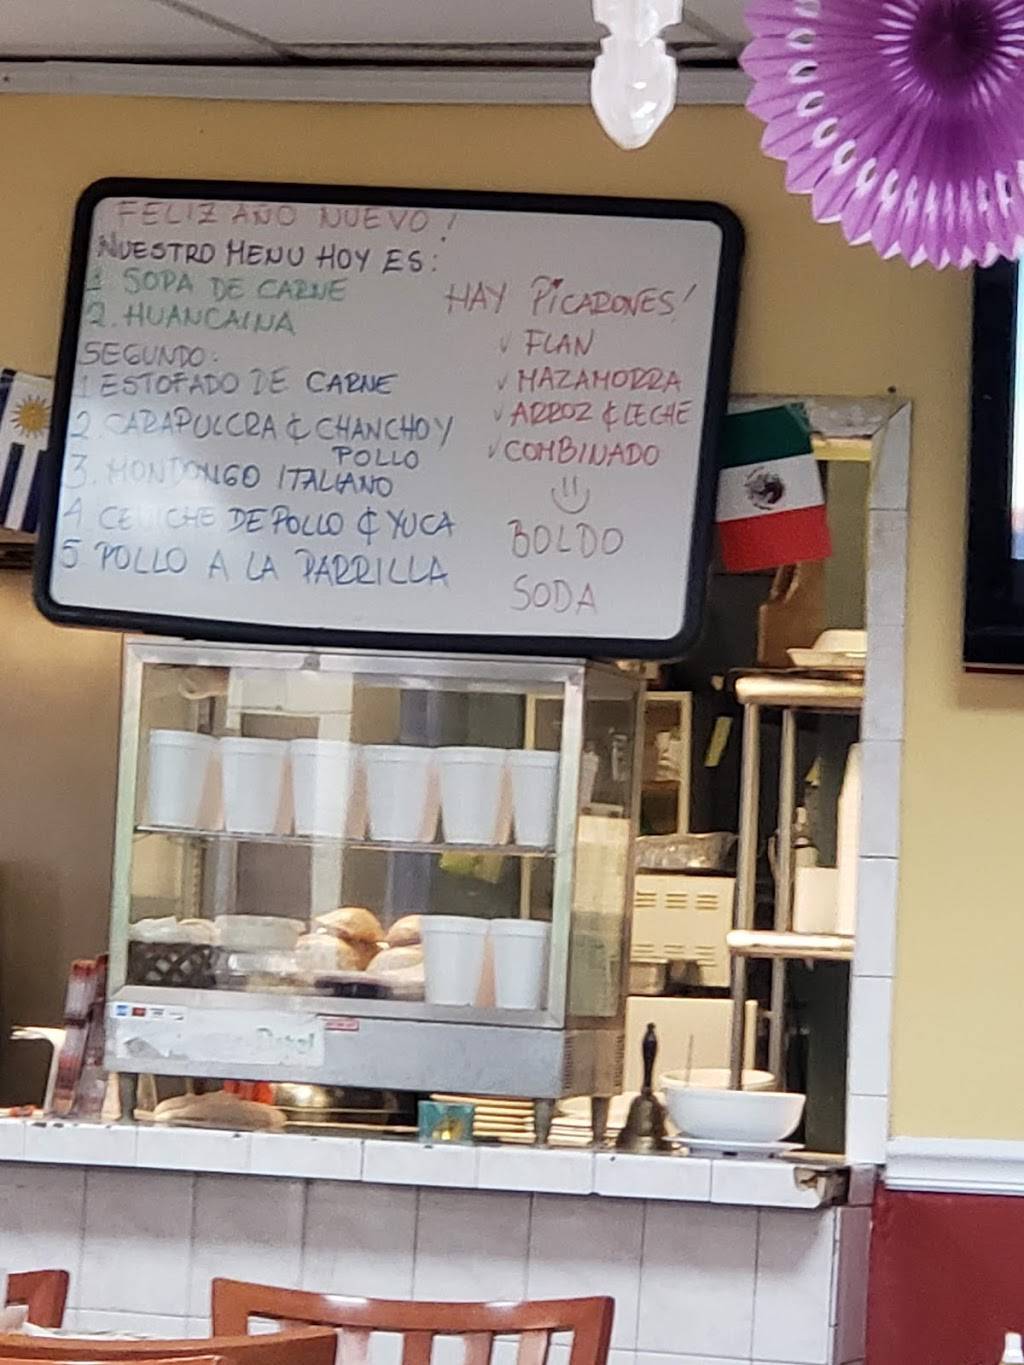 FELIZ AÑO NUEVO!
NUESTRO MENU HOY ES:
1 SOPA DE CARNE
2. HUANCAINA
SEGUNDO:
1 ESTOFADO DE CARNE
2. CARAPULCRA ¢ CHANCHO Y
POLLO
3. MONDONGO ITALIANO
4 CEVICHE DE POLLO ¢ YUCA
5 POLLO A LA PARRILLA
HAY PICARONES!
✓ FLAN
✓ MAZAMORRA
✓ ARROZ ¢ LECHE
✓ COMBINADO
BOLDO
SODA